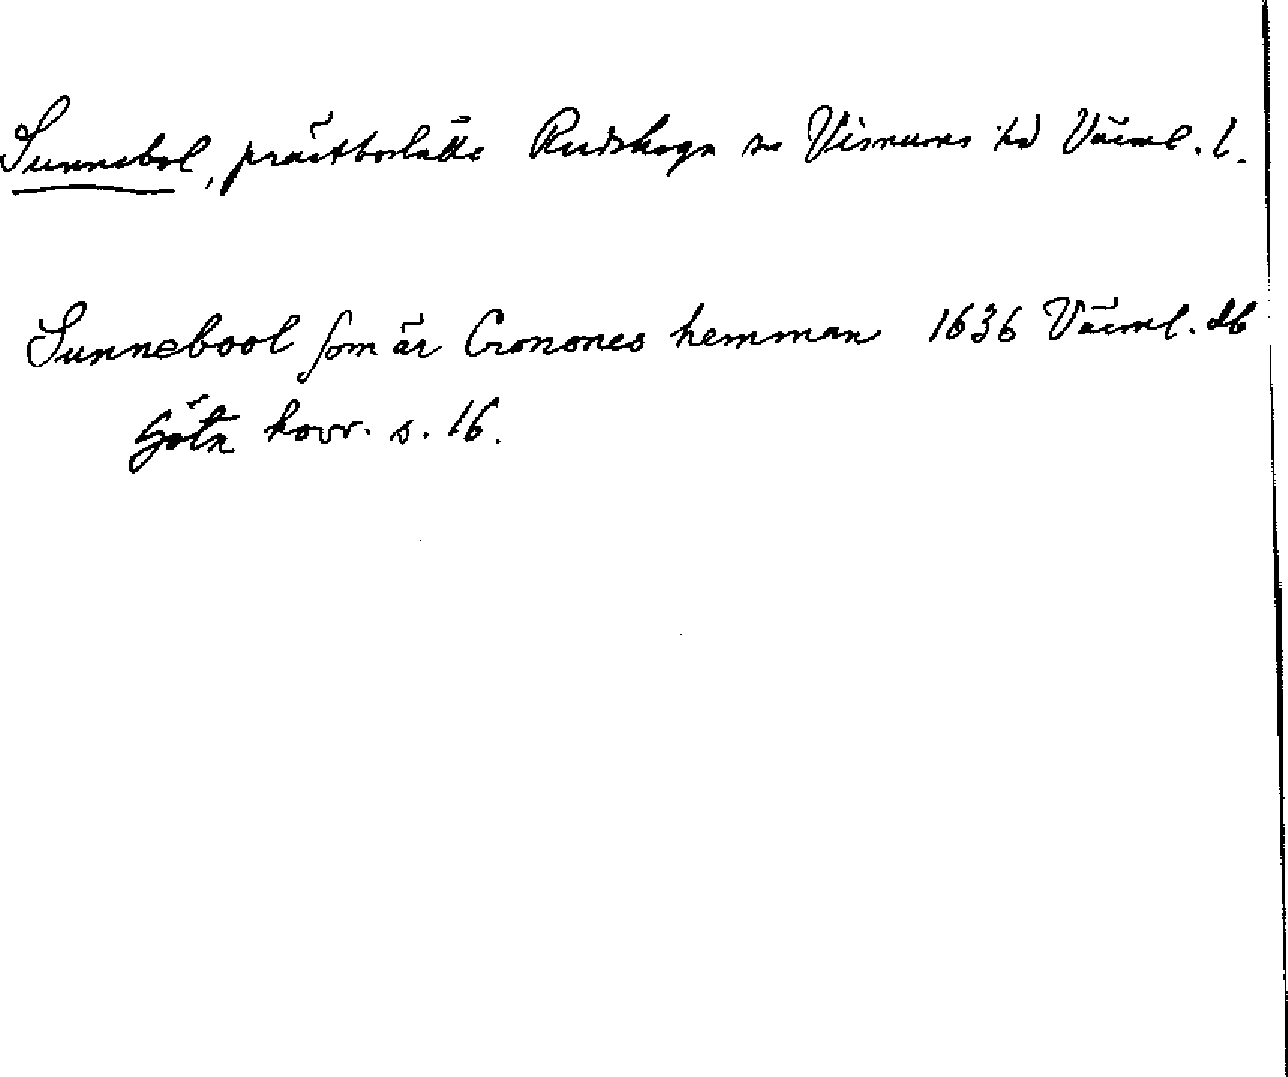 Sunnebol, prästbolätte Rudskoga sn Visnums hd Värml. l.
Sunnebool som är Cronones hemman 1636 Värml. db
Göta hovr. s. 16.